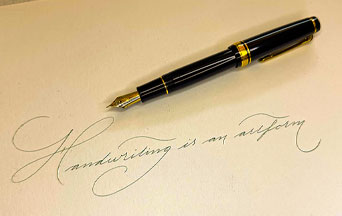 Handwriting is an artform